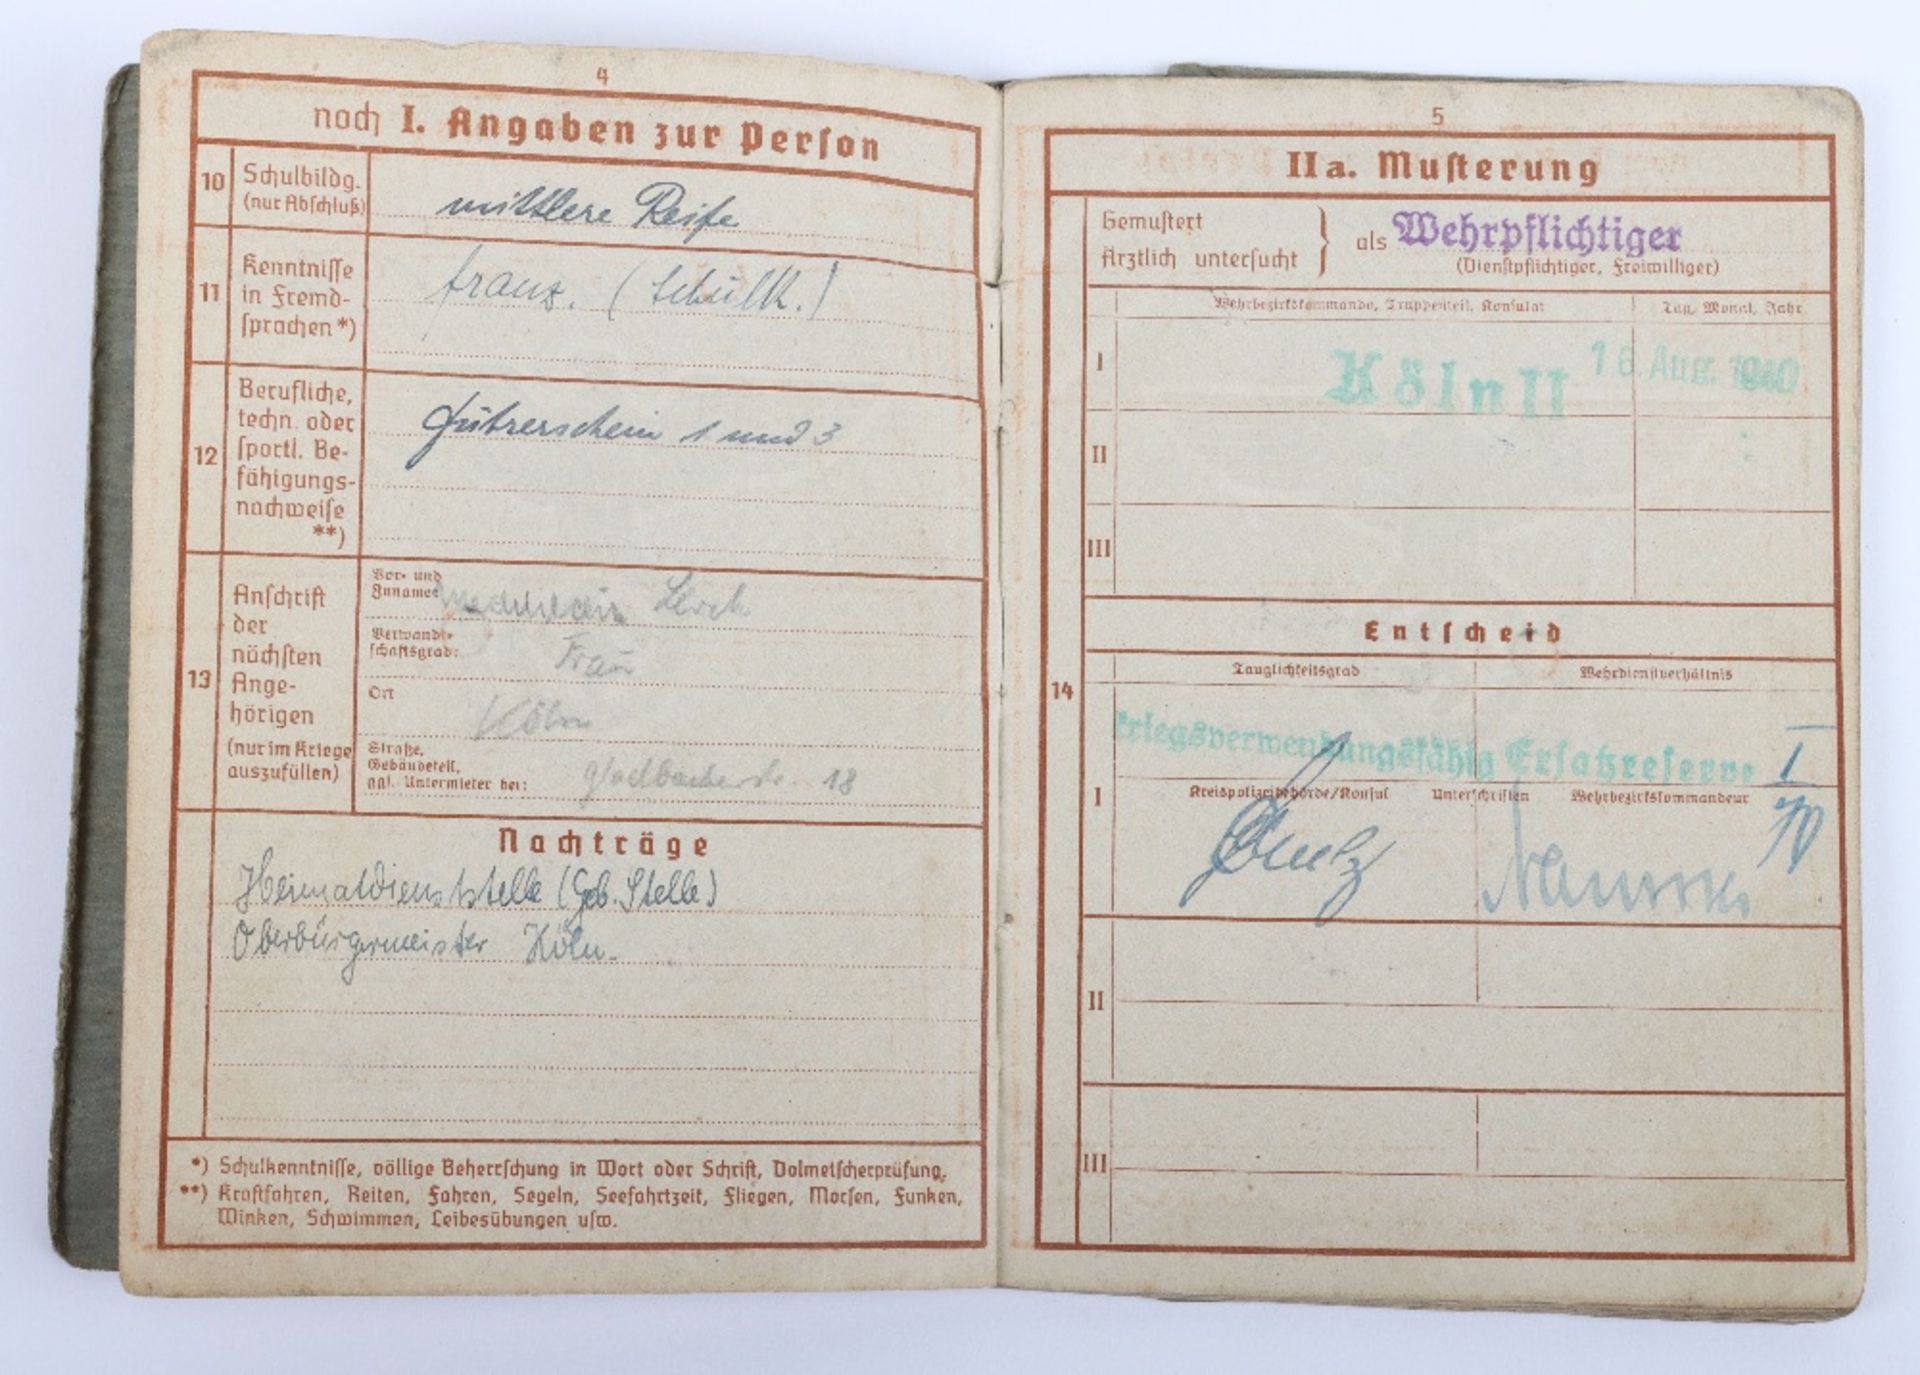 4
noch I. Angaben zur Person
10 Schulbildg. (nur Abschluß)
mittlere Reife
11 Kenntnisse in Fremd-
sprachen *)
franz. (Schulk.)
12 Berufliche,
techn. oder
sportl. Be-
fähigungs-
nachweise
**)
Führerschein 1 und 3
13 Anschrift
der
nächsten
Ange-
hörigen
(nur im Kriege
auszufüllen)
Vor- und
Zuname:
Verwandt-
schaftsgrad:
Frau
Ort
Köln
Straße,
Gebäudeteil,
ggf. Untermieter bei:
Gladbacherstr. 18
Nachträge
Heimatdienststelle (Geb. Stelle)
Oberbürgermeister Köln.
*) Schulkenntnisse, völlige Beherrschung in Wort oder Schrift, Dolmetscherprüfung.
**) Kraftfahren, Reiten, Fahren, Segeln, Seefahrtzeit, Fliegen, Morsen, Funken,
Winken, Schwimmen, Leibesübungen usw.
5
IIa. Musterung
14
Gemustert
Ärztlich untersucht } als Wehrpflichtiger
(Dienstpflichtiger, Freiwilliger)
Wehrbezirkskommando, Truppenteil, Konsulat
Tag, Monat, Jahr
I Köln II 16. Aug. 1940
II
III
Entscheid
Tauglichkeitsgrad
Wehrdienstverhältnis
kriegsverwendungsfähig Ersatzreserve I
I
Kreispolizeibehörde/Konsul Unterschriften Wehrbezirkskommandeur
II
III